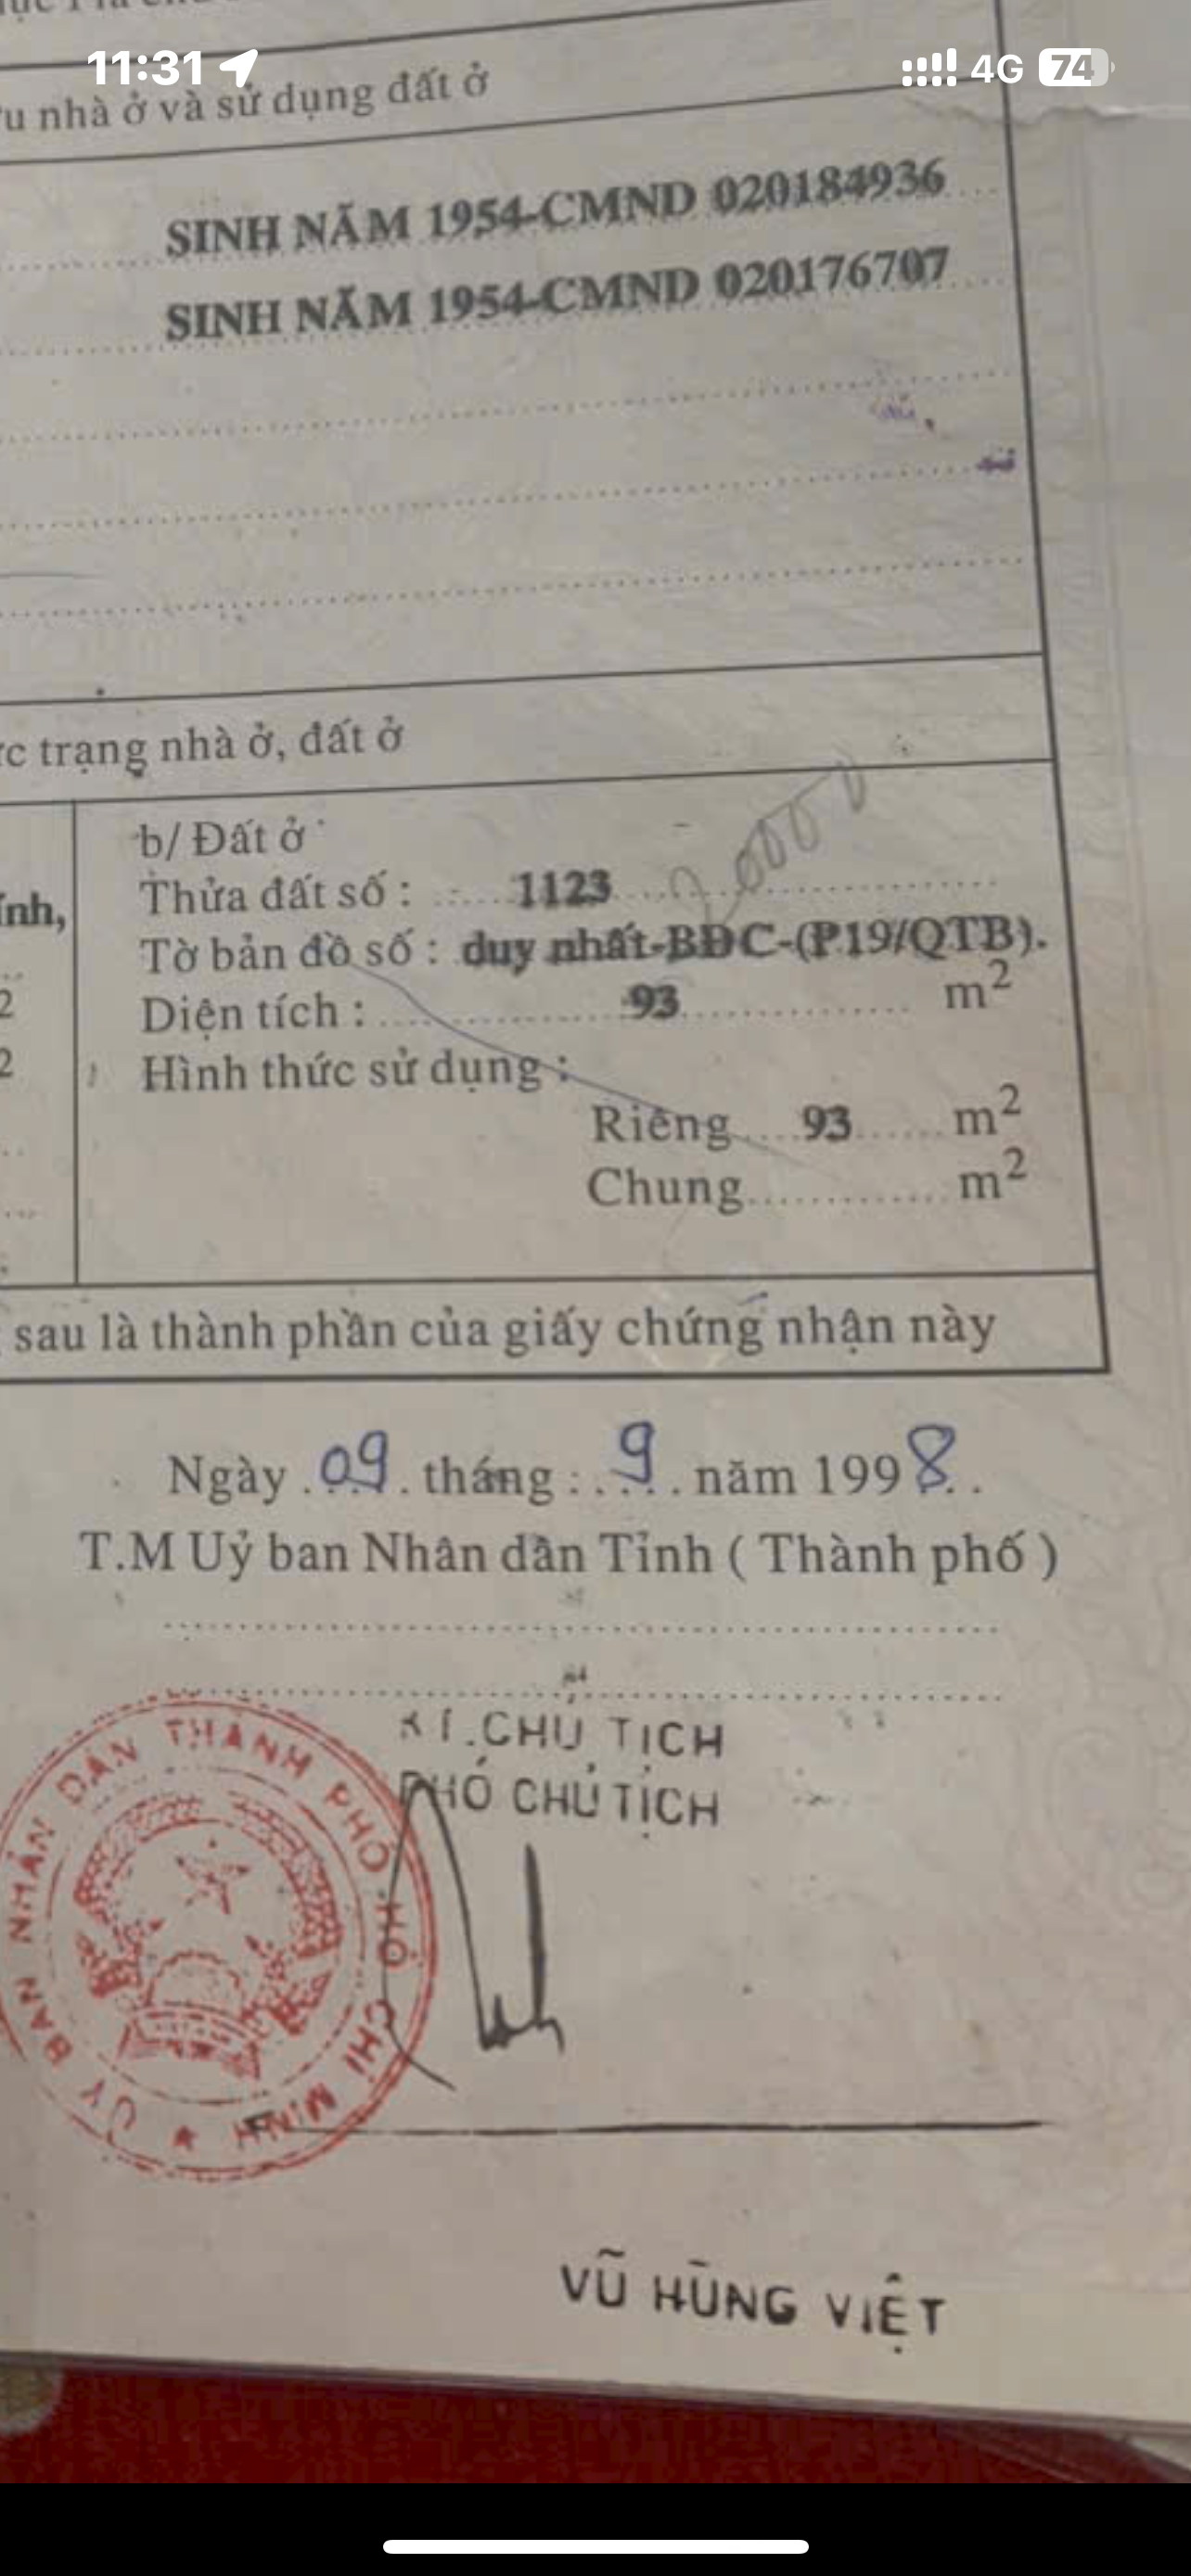 11:31 4G 74
u nhà ở và sử dụng đất ở
SINH NĂM 1954-CMND 020184936
SINH NĂM 1954-CMND 020176707
trạng nhà ở, đất ở
b/ Đất ở
Thửa đất số : 1123
20000
ính,
Tờ bản đồ số : duy nhất-BĐC-(P19/QTB).
2
Diện tích : 93 m2
2
Hình thức sử dụng :
Riêng 93 m2
Chung m2
sau là thành phần của giấy chứng nhận này
Ngày 09 tháng : 9 năm 1998
T.M Uỷ ban Nhân dân Tỉnh ( Thành phố )
KT.CHỦ TỊCH
PHÓ CHỦ TỊCH
ỦY BAN NHÂN DÂN THÀNH PHỐ HỒ CHÍ MINH
VŨ HÙNG VIỆT